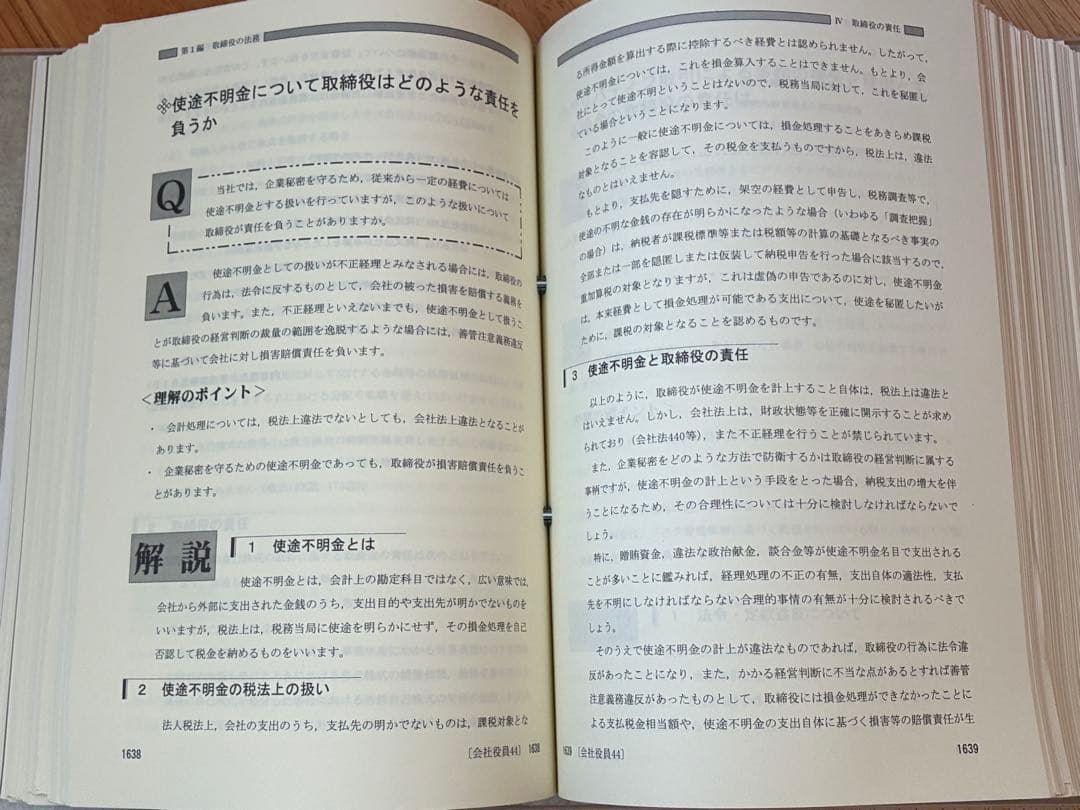 第1編 取締役の法務
※使途不明金について取締役はどのような責任を
負うか
Q
当社では，企業秘密を守るため，従来から一定の経費については
使途不明金とする扱いを行っていますが，このような扱いについて
取締役が責任を負うことがありますか。
A
使途不明金としての扱いが不正経理とみなされる場合には，取締役の
行為は，法令に反するものとして，会社の被った損害を賠償する義務を
負います。また，不正経理といえないまでも，使途不明金として扱うこ
とが取締役の経営判断の裁量の範囲を逸脱するような場合には，善管注意義務違反
等に基づいて会社に対し損害賠償責任を負います。
＜理解のポイント＞
・ 会計処理については，税法上違法でないとしても，会社法上違法となることが
あります。
・ 企業秘密を守るための使途不明金であっても，取締役が損害賠償責任を負うこ
とがあります。
解説
1 使途不明金とは
使途不明金とは，会計上の勘定科目ではなく，広い意味では，
会社から外部に支出された金銭のうち，支出目的や支出先が明かでないものを
いいますが，税法上は，税務当局に使途を明らかにせず，その損金処理を自己
否認して税金を納めるものをいいます。
2 使途不明金の税法上の扱い
法人税法上，会社の支出のうち，支払先の明かでないものは，課税対象とな
1638
〔会社役員44〕 1638
Ⅳ 取締役の責任
る所得金額を算出する際に控除するべき経費とは認められません。したがって，
使途不明金については，これを損金算入することはできません。もとより，会
社にとって使途不明ということはないので，税務当局に対して，これを秘匿し
ている場合ということになります。
このように一般に使途不明金については，損金処理することをあきらめ課税
対象となることを容認して，その税金を支払うものですから，税法上は，違法
なものとはいえません。
もとより，支払先を隠すために，架空の経費として申告し，税務調査等で，
使途の不明な金銭の存在が明らかになったような場合（いわゆる「調査把握」
の場合）は，納税者が課税標準等または税額等の計算の基礎となるべき事実の
全部または一部を隠匿しまたは仮装して納税申告を行った場合に該当するので，
重加算税の対象となりますが，これは虚偽の申告であるのに対し，使途不明金
は，本来経費として損金処理が可能である支出について，使途を秘匿したいが
ために，課税の対象となることを認めるものです。
3 使途不明金と取締役の責任
以上のように，取締役が使途不明金を計上すること自体は，税法上は違法と
はいえません。しかし，会社法上は，財政状態等を正確に開示することが求め
られており（会社法440等），また不正経理を行うことが禁じられています。
また，企業秘密をどのような方法で防衛するかは取締役の経営判断に属する
事柄ですが，使途不明金の計上という手段をとった場合，納税支出の増大を伴
うことになるため，その合理性については十分に検討しなければならないで
しょう。
特に，贈賄資金，違法な政治献金，談合金等が使途不明金名目で支出される
ことが多いことに鑑みれば，経理処理の不正の有無，支出自体の適法性，支払
先を不明にしなければならない合理的事情の有無が十分に検討されるべきで
しょう。
そのうえで使途不明金の計上が違法なものであれば，取締役の行為に法令違
反があったことになり，また，かかる経営判断に不当な点があるとすれば善管
注意義務違反があったものとして，取締役には損金処理ができなかったことに
よる支払税金相当額や，使途不明金の支出自体に基づく損害等の賠償責任が生
1639 〔会社役員44〕
1639